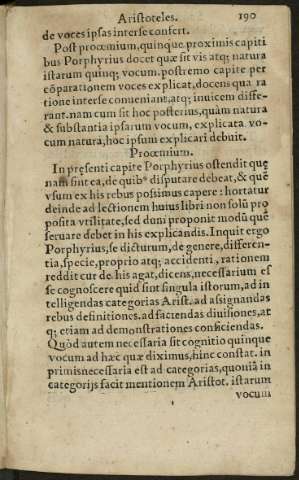 Aristoteles. 190
de voces ipsas inter se confert.
Post proœmium, quinque proximis capiti
bus Porphyrius docet quæ sit vis atq; natura
istarum quinq; vocum. postremo capite per
cōparationem voces explicat, docens qua ra
tione inter se conueniant, atq; inuicem diffe-
rant. nam cum sit hoc posterius, quàm natura
& substantia ipsarum vocum, explicata vo-
cum natura, hoc ipsum explicari debuit.
Proœmium.
In presenti capite Porphyrius ostendit quę
nam sint ea, de quib⁹ disputare debeat, & quē
vsum ex his rebus possimus capere: hortatur
deinde ad lectionem huius libri non solū pro
posita vtilitate, sed doni proponit modū quē
seruare debet in his explicandis. Inquit ergo
Porphyrius, se dicturum, de genere, differen-
tia, specie, proprio atq; accidenti, rationem
reddit cur de his agat, dicens, necessarium es
se cognoscere quid sint singula istorum, ad in
telligendas categorias Arist. ad assignandas
rebus definitiones. ad faciendas diuisiones, at
q; etiam ad demonstrationes conficiendas.
Quòd autem necessaria sit cognitio quinque
vocum ad hæc quæ diximus, hinc constat. in
primis necessaria est ad categorias, quoniā in
categorijs facit mentionem Aristot. istarum
vocum